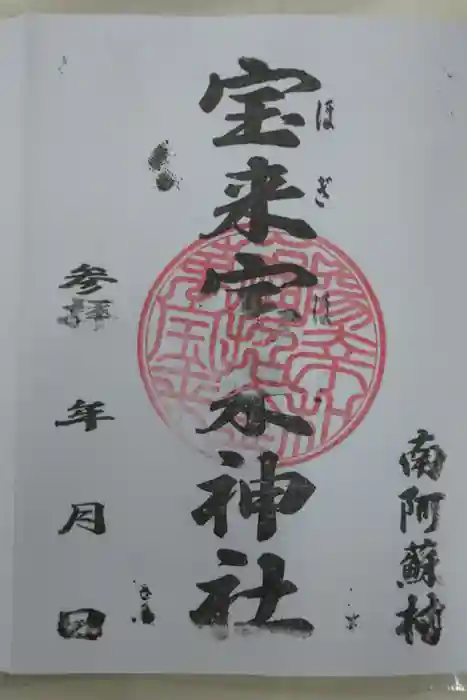 南阿蘇村
ほぎほ
宝来宝来神社
参拝 年 月 日